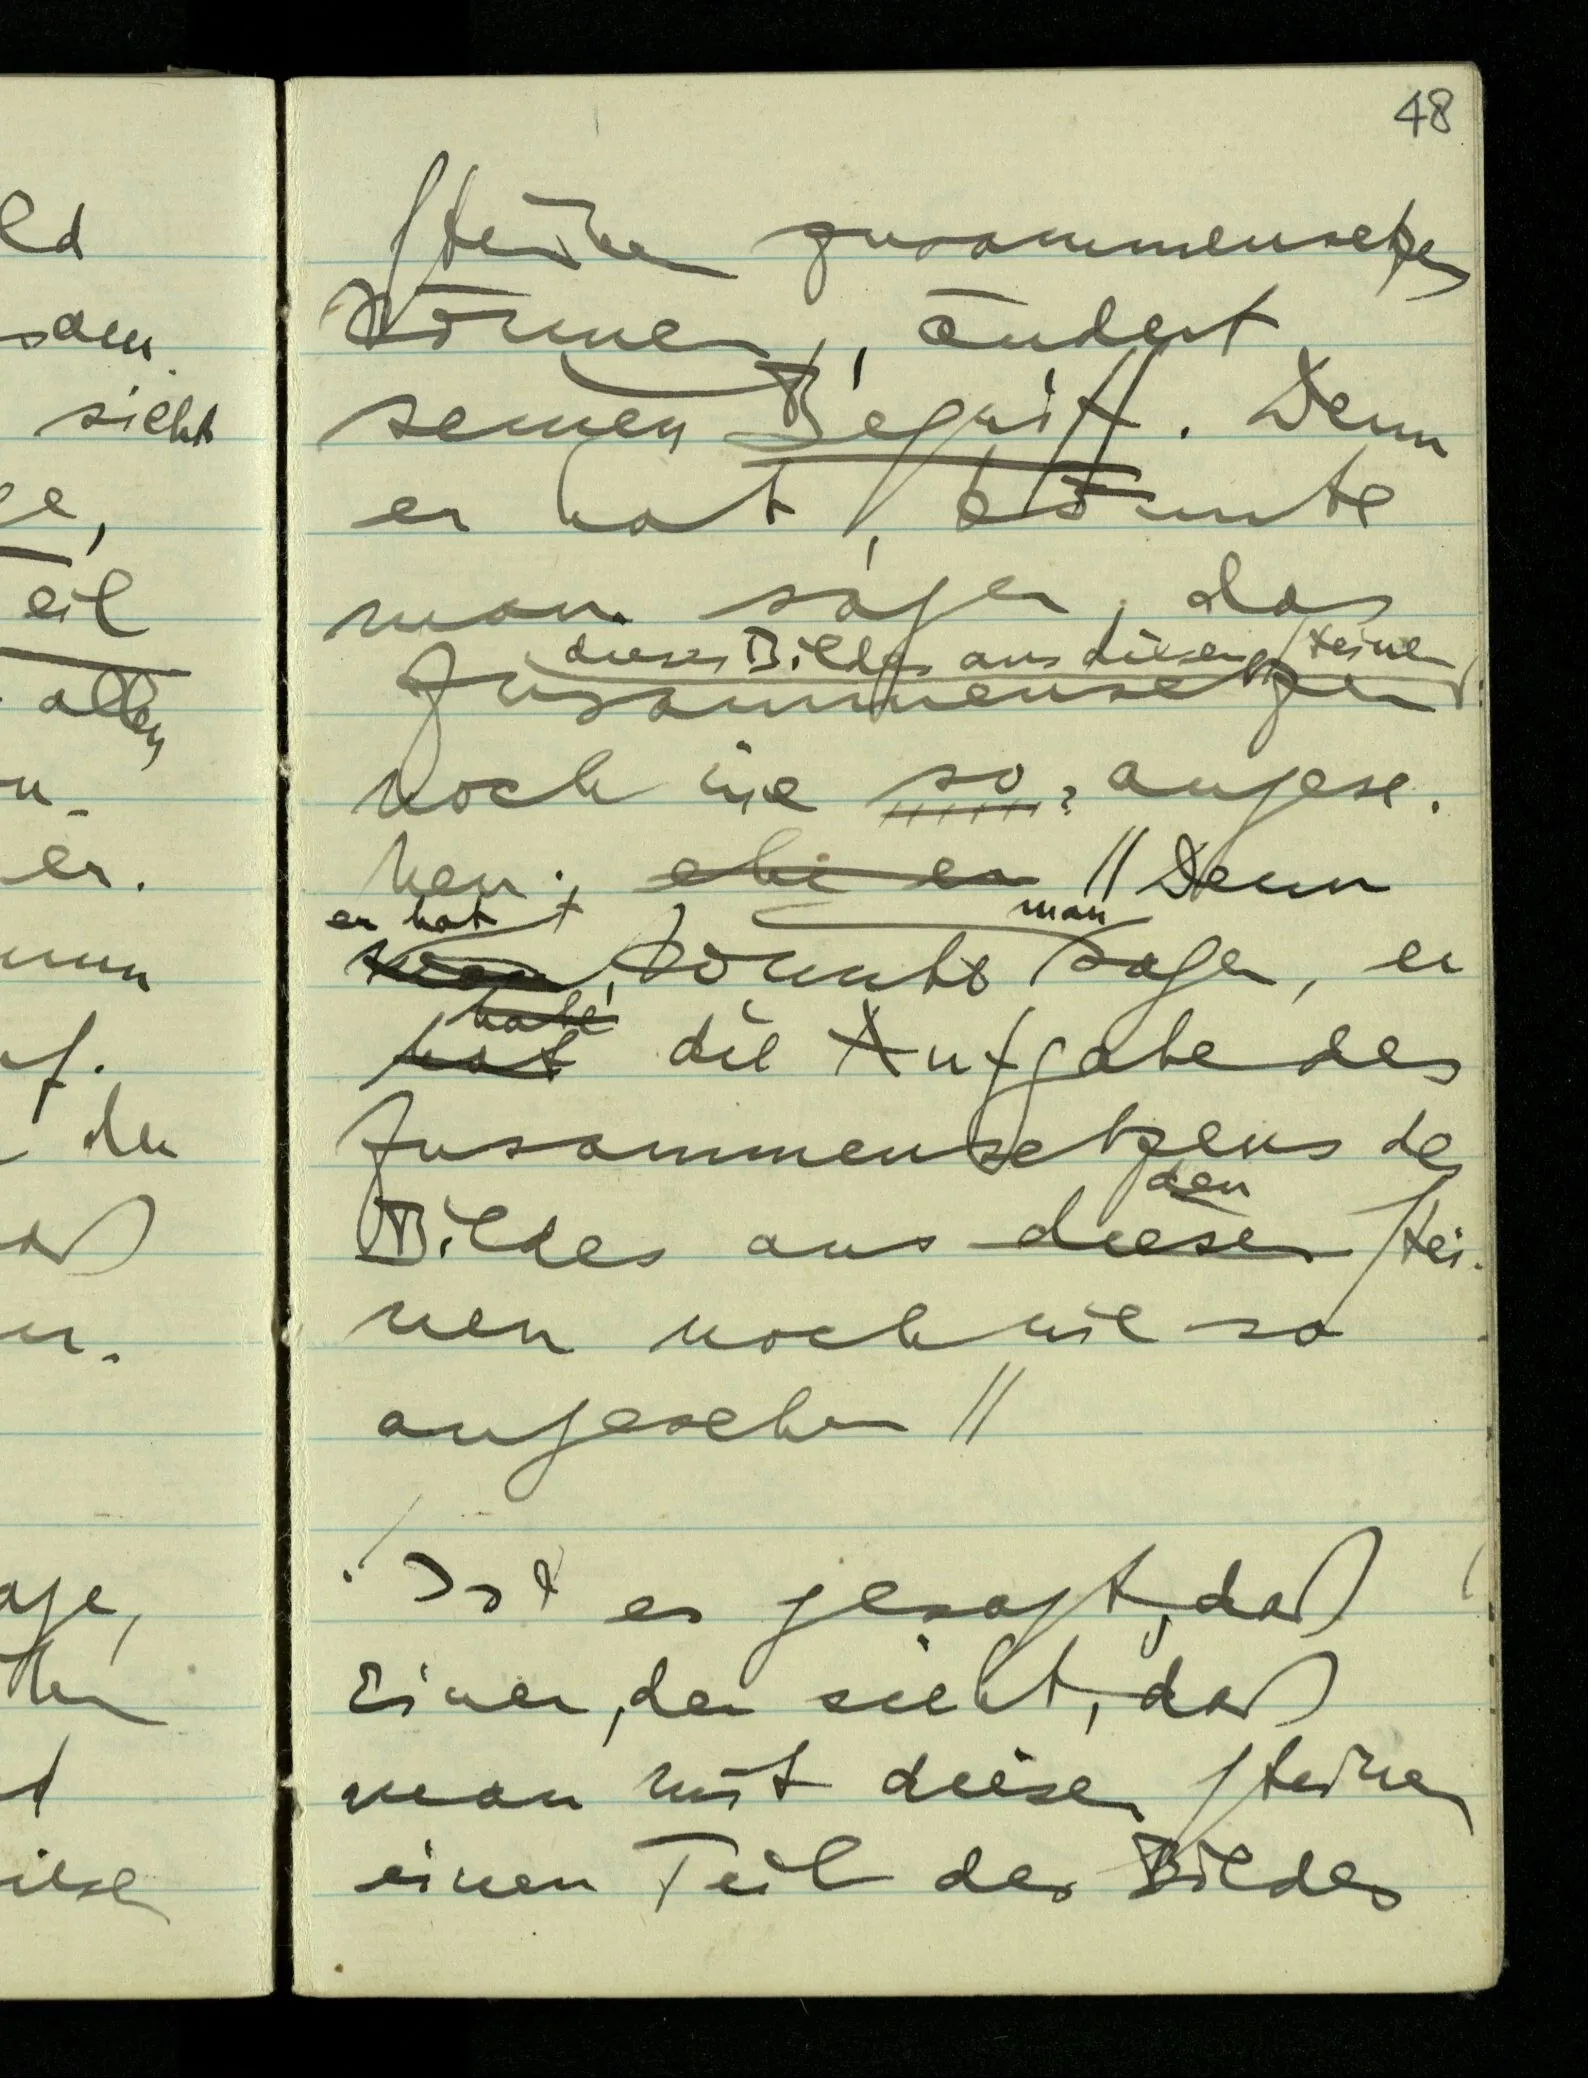 48
ld
sam
sieht
ge,
Teil
allen
er.
f.
den
age,
Steinen zusammensetzen
können, ändert
seinen Begriff. Denn
er hat, könnte
man sagen, das
dieses Bildes aus diesen Steinen
Zusammensetzen
noch nie so angese-
hen; ehe er // Denn
er hat man
könnte sagen, er
habe
hat die Aufgabe des
Zusammensetzens des
den
Bildes aus diesen Stei-
nen noch nie so
angesehen //
Ist es gesagt, daß
Einer, der sieht, daß
man mit diesen Steinen
einen Teil des Bildes